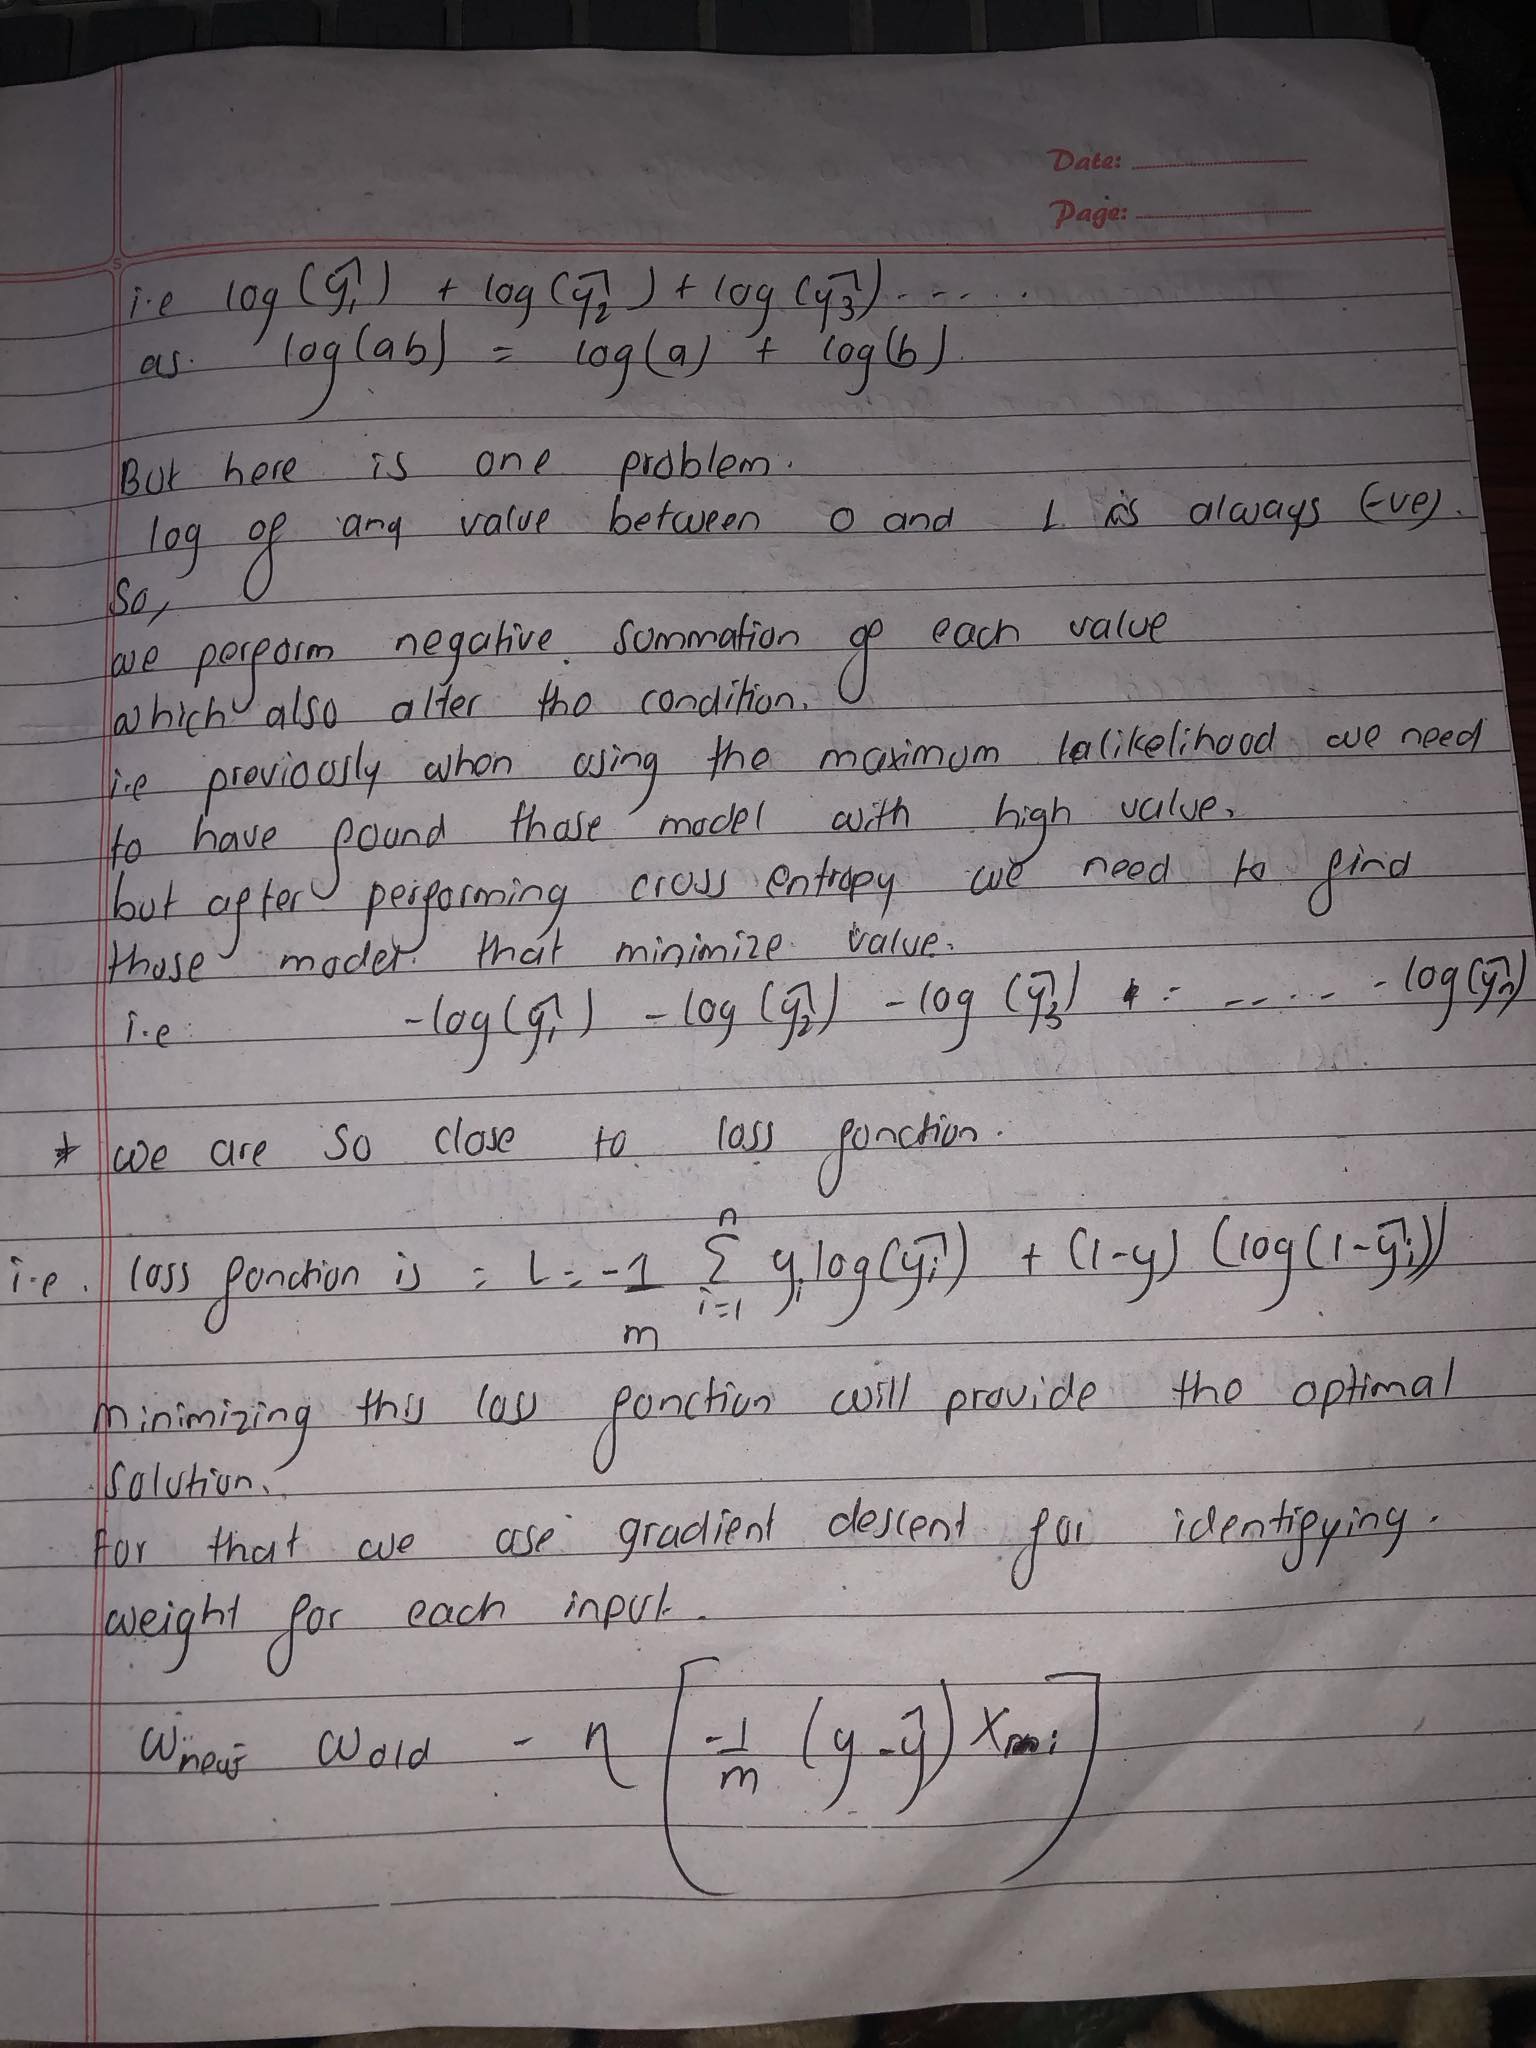 Date:
Page:
i.e log(ŷ₁) + log(ŷ₂) + log(ŷ₃)- - -- . .
as. log(ab) = log(a) + log(b).
But here is one problem.
log of any value between 0 and 1 is always (-ve).
So,
we perform negative summation of each value
which also alter the condition.
i.e previously when using the maximum lalikelihood we need
to have found those model with high value.
but after performing cross entropy we need to find
those model that minimize value.
i.e: -log(ŷ₁) - log(ŷ₂) - log(ŷ₃) - ..... - log(ŷₙ)
* we are so close to loss function.
i.e. loss function is = L = -1/m Σ_{i=1}^{n} yᵢ log(ŷᵢ) + (1-y) (log(1-ŷᵢ))
minimizing this loss function will provide the optimal
solution.
For that we use gradient descent for identifying.
weight for each input.
w_new = w_old - η [-1/m (y - ŷ) X ᵢ]